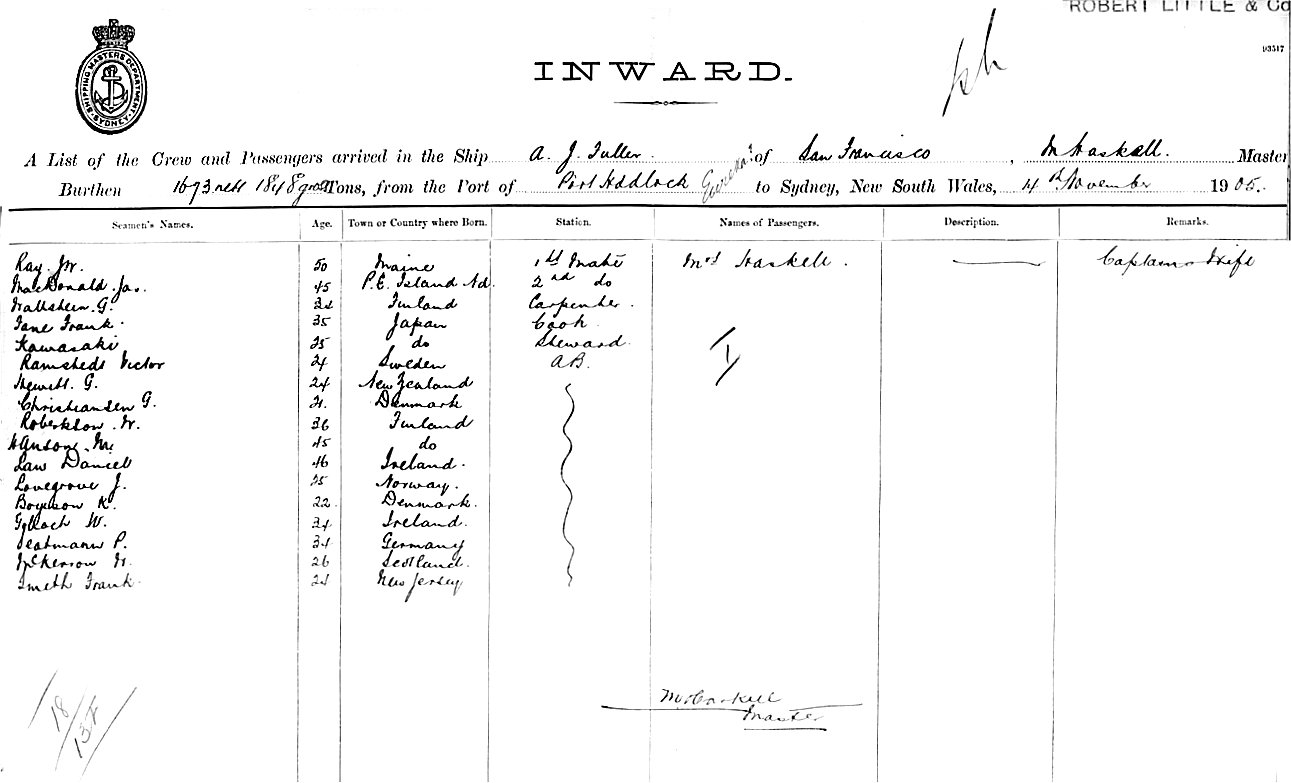 ROBERT LITTLE & Co
93517
SHIPPING MASTERS DEPARTMENT SYDNEY
INWARD.
A List of the Crew and Passengers arrived in the Ship A. J. Fuller. of San Francisco, M Haskell. Master
Burthen 1673 nett 1848 gross Tons, from the Port of Port Hadlock Eureka to Sydney, New South Wales, 4th November 1905.
Seamen's Names. Age. Town or Country where Born. Station. Names of Passengers. Description. Remarks.
Ray. W. 50 Maine 1st Mate Mrs Haskell. Captains Wife
MacDonald Jas. 45 P.E. Island Nd. 2nd do
Wallstein. G. 32 Finland Carpenter.
Tane Frank. 35 Japan Cook.
Kawasaki 25 do Steward.
Ramstedt Victor 24 Sweden A.B.
Hewett. G. 24 New Zealand
Christiansen G. 21. Denmark
Robertson. W. 36 Finland
Hansom. M. 45 do
Law Daniell 46 Ireland.
Lovegrove J. 25 Norway.
Boyeson K. 22 Denmark.
W. 34 Ireland.
P. 34 Germany
W. 26 Scotland.
Smeth Frank. 24 New Jersey
M Haskell
Master
18